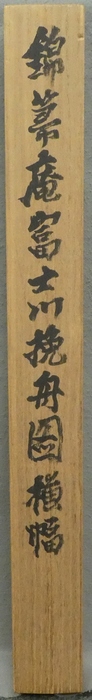 錦蕾庵富士川挽舟圖横幅